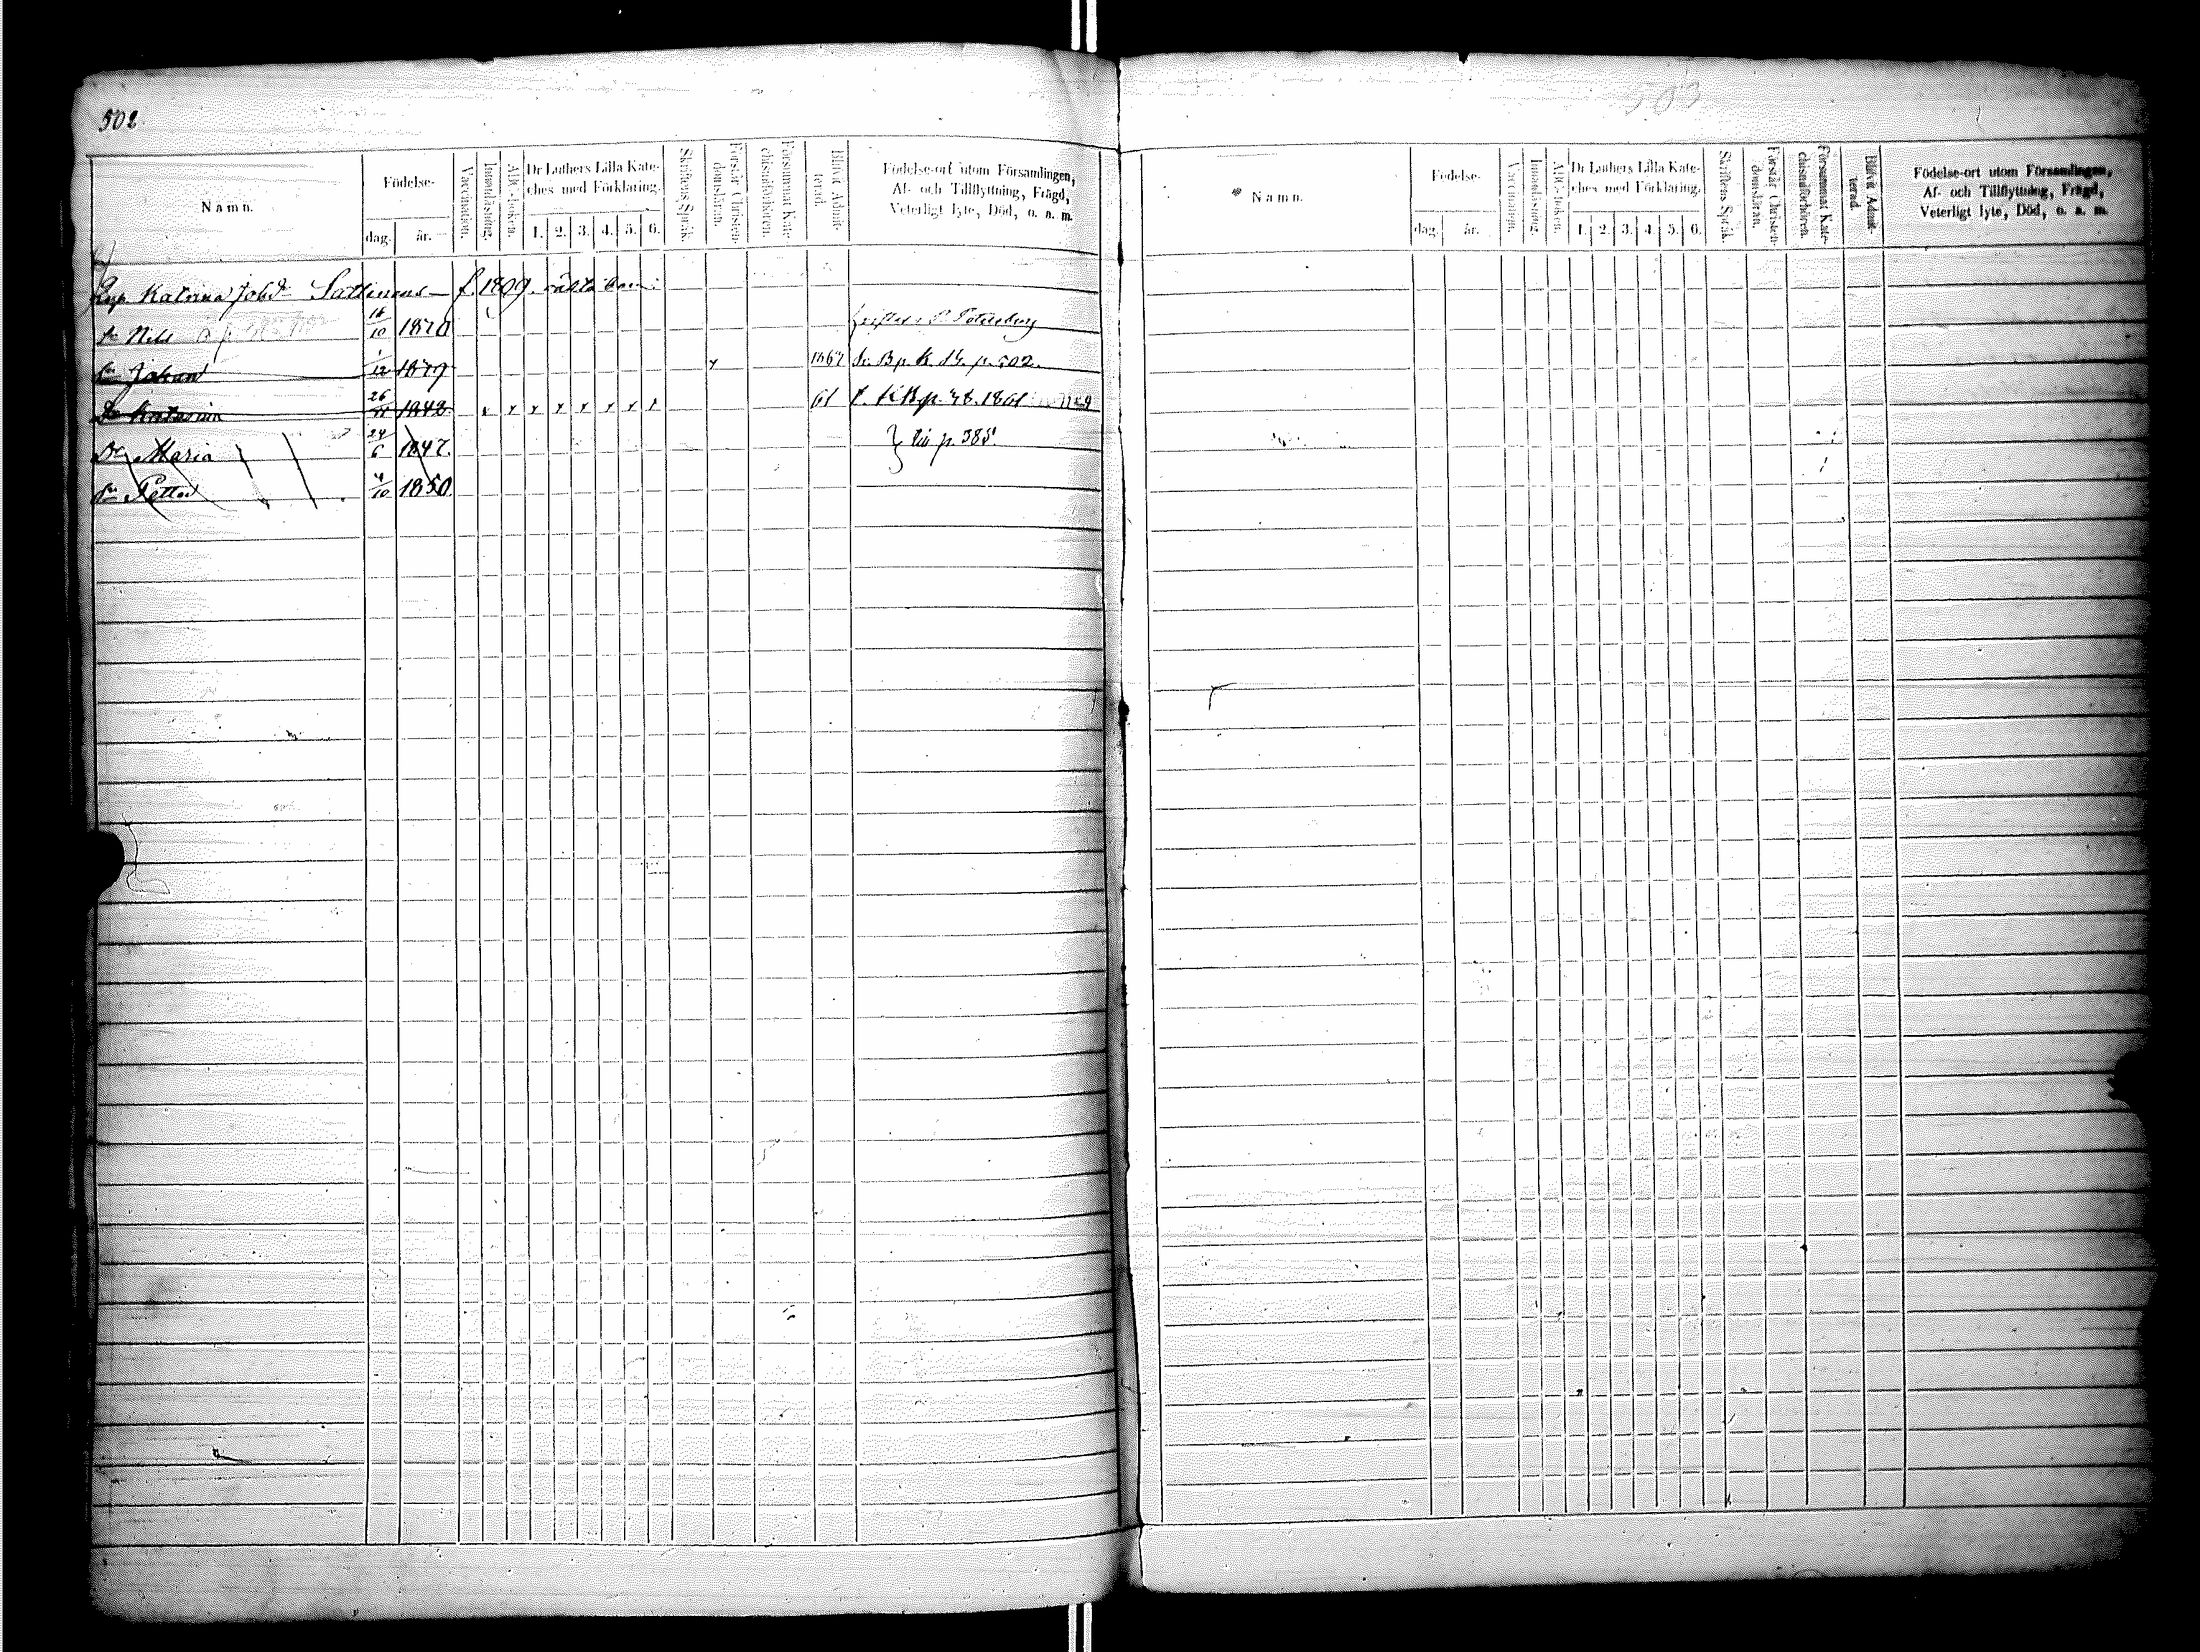 502.
503
Namn.
Födelse-
dag.
år.
Vaccination.
Innanläsning.
ABC-boken.
Dr Luthers Lilla Kate-
ches med Förklaring.
1. 2. 3. 4. 5. 6.
Skriftens Språk.
Förstår Christen-
domsläran.
Försummat Kate-
chismiförhören.
Blifvit Admit-
terad.
Födelse-ort utom Församlingen,
Af- och Tillflyttning, Frägd,
Veterligt lyte, Död, o. a. m.
Katrina Johd Sattinens f. 1809. oäkta barn:
Sn Nils 16/10 1830 Petersburg
Sn Johan 1/12 1839 x 1862 p. 502.
Dr Katarina 26/11 1842 x x x x x x x x 61 p. 48. 1861
Dr Maria 24/6 1847. } p. 385.
Sn Petter 4/10 1850
Namn.
Födelse-
dag.
år.
Vaccination.
Innanläsning.
ABC-boken.
Dr Luthers Lilla Kate-
ches med Förklaring.
1. 2. 3. 4. 5. 6.
Skriftens Språk.
Förstår Christen-
domsläran.
Försummat Kate-
chismiförhören.
Blifvit Admit-
terad.
Födelse-ort utom Församlingen,
Af- och Tillflyttning, Frägd,
Veterligt lyte, Död, o. a. m.